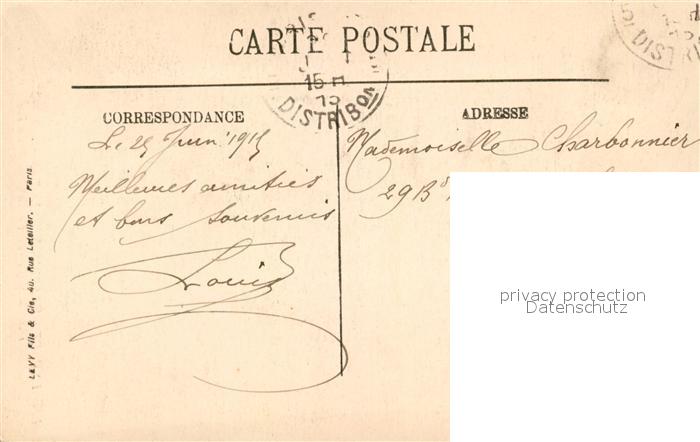 CARTE POSTALE
15 H
DISTRIBON
DISTRI
CORRESPONDANCE
Le 25 Juin 1915
Meilleures amitiés
et bons souvenirs
Louis
ADRESSE
Mademoiselle Charbonnier
29 Bd
privacy protection
Datenschutz
LEVY Fils & Cie, 40, Rue Letellier. — Paris